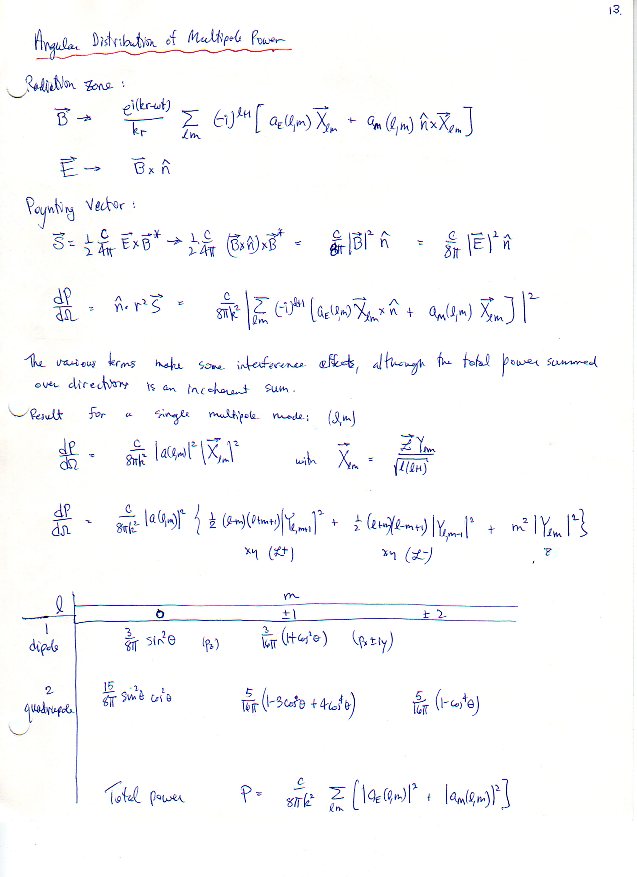 13.
Angular Distribution of Multipole Power
Radiation zone :
B⃗ → e^{i(kr-ωt)}/kr Σ_{lm} (-i)^{l+1} [ a_E(l,m) X⃗_{lm} + a_M(l,m) n̂×X⃗_{lm} ]
E⃗ → B⃗ × n̂
Poynting Vector :
S⃗ = 1/2 c/4π E⃗×B⃗* → 1/2 c/4π (B⃗×n̂)×B⃗* = c/8π |B⃗|² n̂ = c/8π |E⃗|² n̂
dP/dΩ = n̂ · r² S⃗ = c/8πk² | Σ_{lm} (-i)^{l+1} [ a_E(l,m) X⃗_{lm} × n̂ + a_M(l,m) X⃗_{lm} ] |²
The various terms make some interference effects, although the total power summed
over directions is an incoherent sum.
Result for a single multipole mode: (l,m)
dP/dΩ = c/8πk² |a(l,m)|² |X⃗_{lm}|² with X⃗_{lm} = ℒ⃗ Y_{lm} / √l(l+1)
dP/dΩ = c/8πk² |a(l,m)|² { 1/2 (l-m)(l+m+1) |Y_{l,m+1}|² + 1/2 (l+m)(l-m+1) |Y_{l,m-1}|² + m² |Y_{lm}|² }
xy (ℒ+) xy (ℒ-) z
l m
0 ±1 ±2
1 dipole 3/8π sin²θ (p_z) 3/16π (1+cos²θ) (p_x ± i y)
2 quadrupole 15/8π sin²θ cos²θ 5/16π (1-3cos²θ+4cos⁴θ) 5/16π (1-cos⁴θ)
Total power P = c/8πk² Σ_{lm} [ |a_E(l,m)|² + |a_M(l,m)|² ]